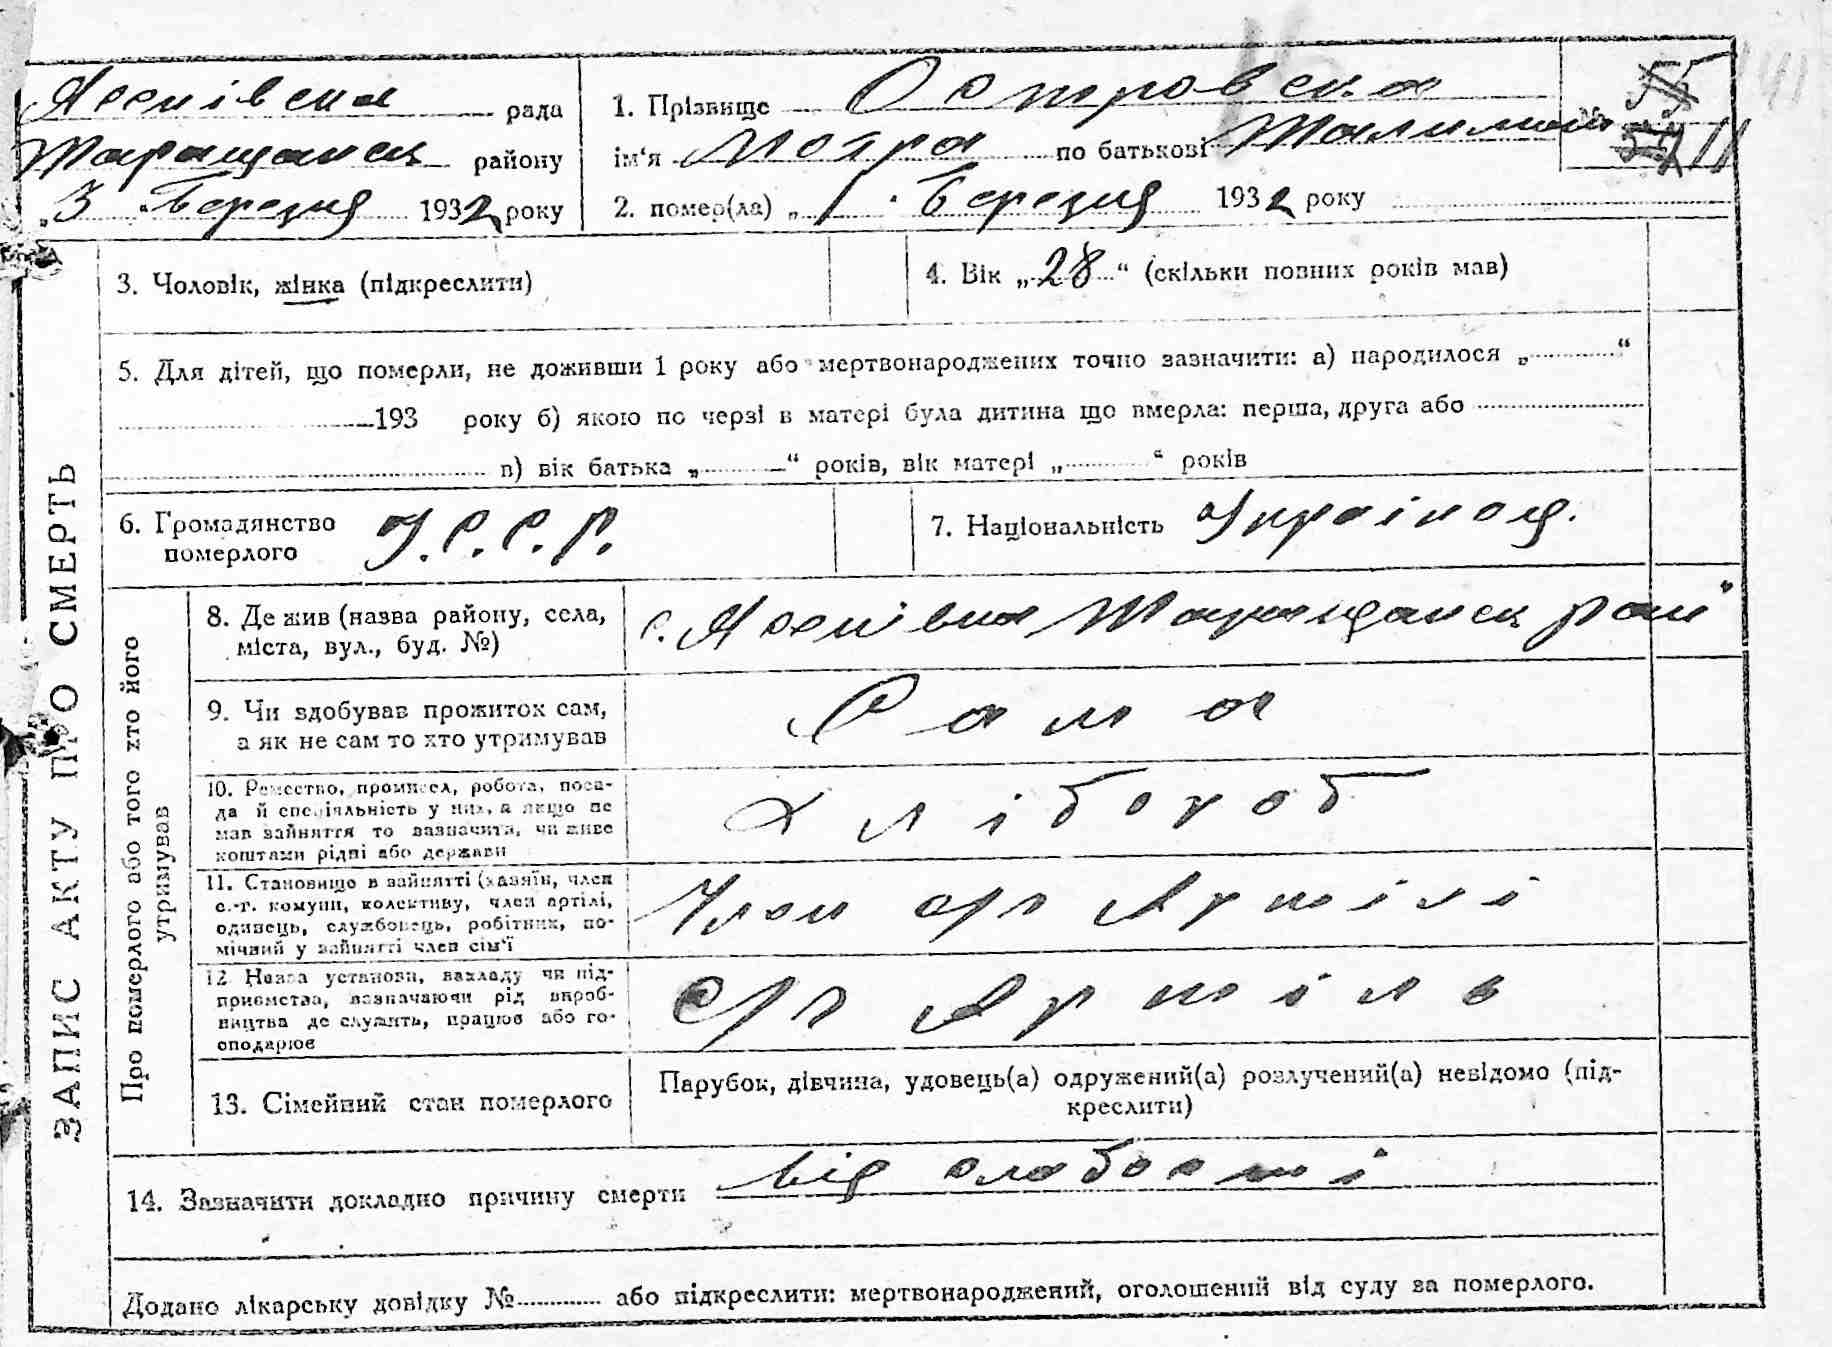 Лосятівська рада
Таращанск району
„3 Березня 1932 року
1. Прізвище Островска
ім'я Мотря по батькові
2. помер(ла) „1 Березня 1932 року
11
ЗАПИС АКТУ ПРО СМЕРТЬ
3. Чоловік, жінка (підкреслити)
4. Вік „28“ (скільки повних років мав)
5. Для дітей, що померли, не доживши 1 року або мертвонароджених точно зазначити: а) народилося „ “
193 року б) якою по черзі в матері була дитина що вмерла: перша, друга або
в) вік батька „ “ років, вік матері „ “ років
6. Громадянство
померлого
У.С.С.Р.
7. Національність Україноц.
Про померлого або того хто його
утримував
8. Де жив (назва району, села,
міста, вул., буд. №)
с. Таращанск рай
9. Чи здобував прожиток сам,
а як не сам то хто утримував
Сама
10. Ремество, промисел, робота, поса-
да й спеціяльність у них, а якщо не
мав зайняття то зазначити, чи живе
коштами рідні або держави
хлібороб
11. Становище в зайнятті (хазяїн, член
с.-г. комуни, колективу, член артілі,
одинець, службовець, робітник, по-
мічний у зайнятті член сім'ї
Член с/г Артілі
12. Назва установи, закладу чи під-
приємства, зазначаючи рід вироб-
ництва де служить, працює або го-
сподарює
с/г Артіль
13. Сімейний стан померлого
Парубок, дівчина, удовець(а) одружений(а) розлучений(а) невідомо (під-
креслити)
14. Зазначити докладно причину смерти від слабости
Додано лікарську довідку № або підкреслити: мертвонароджений, оголошений від суду за померлого.